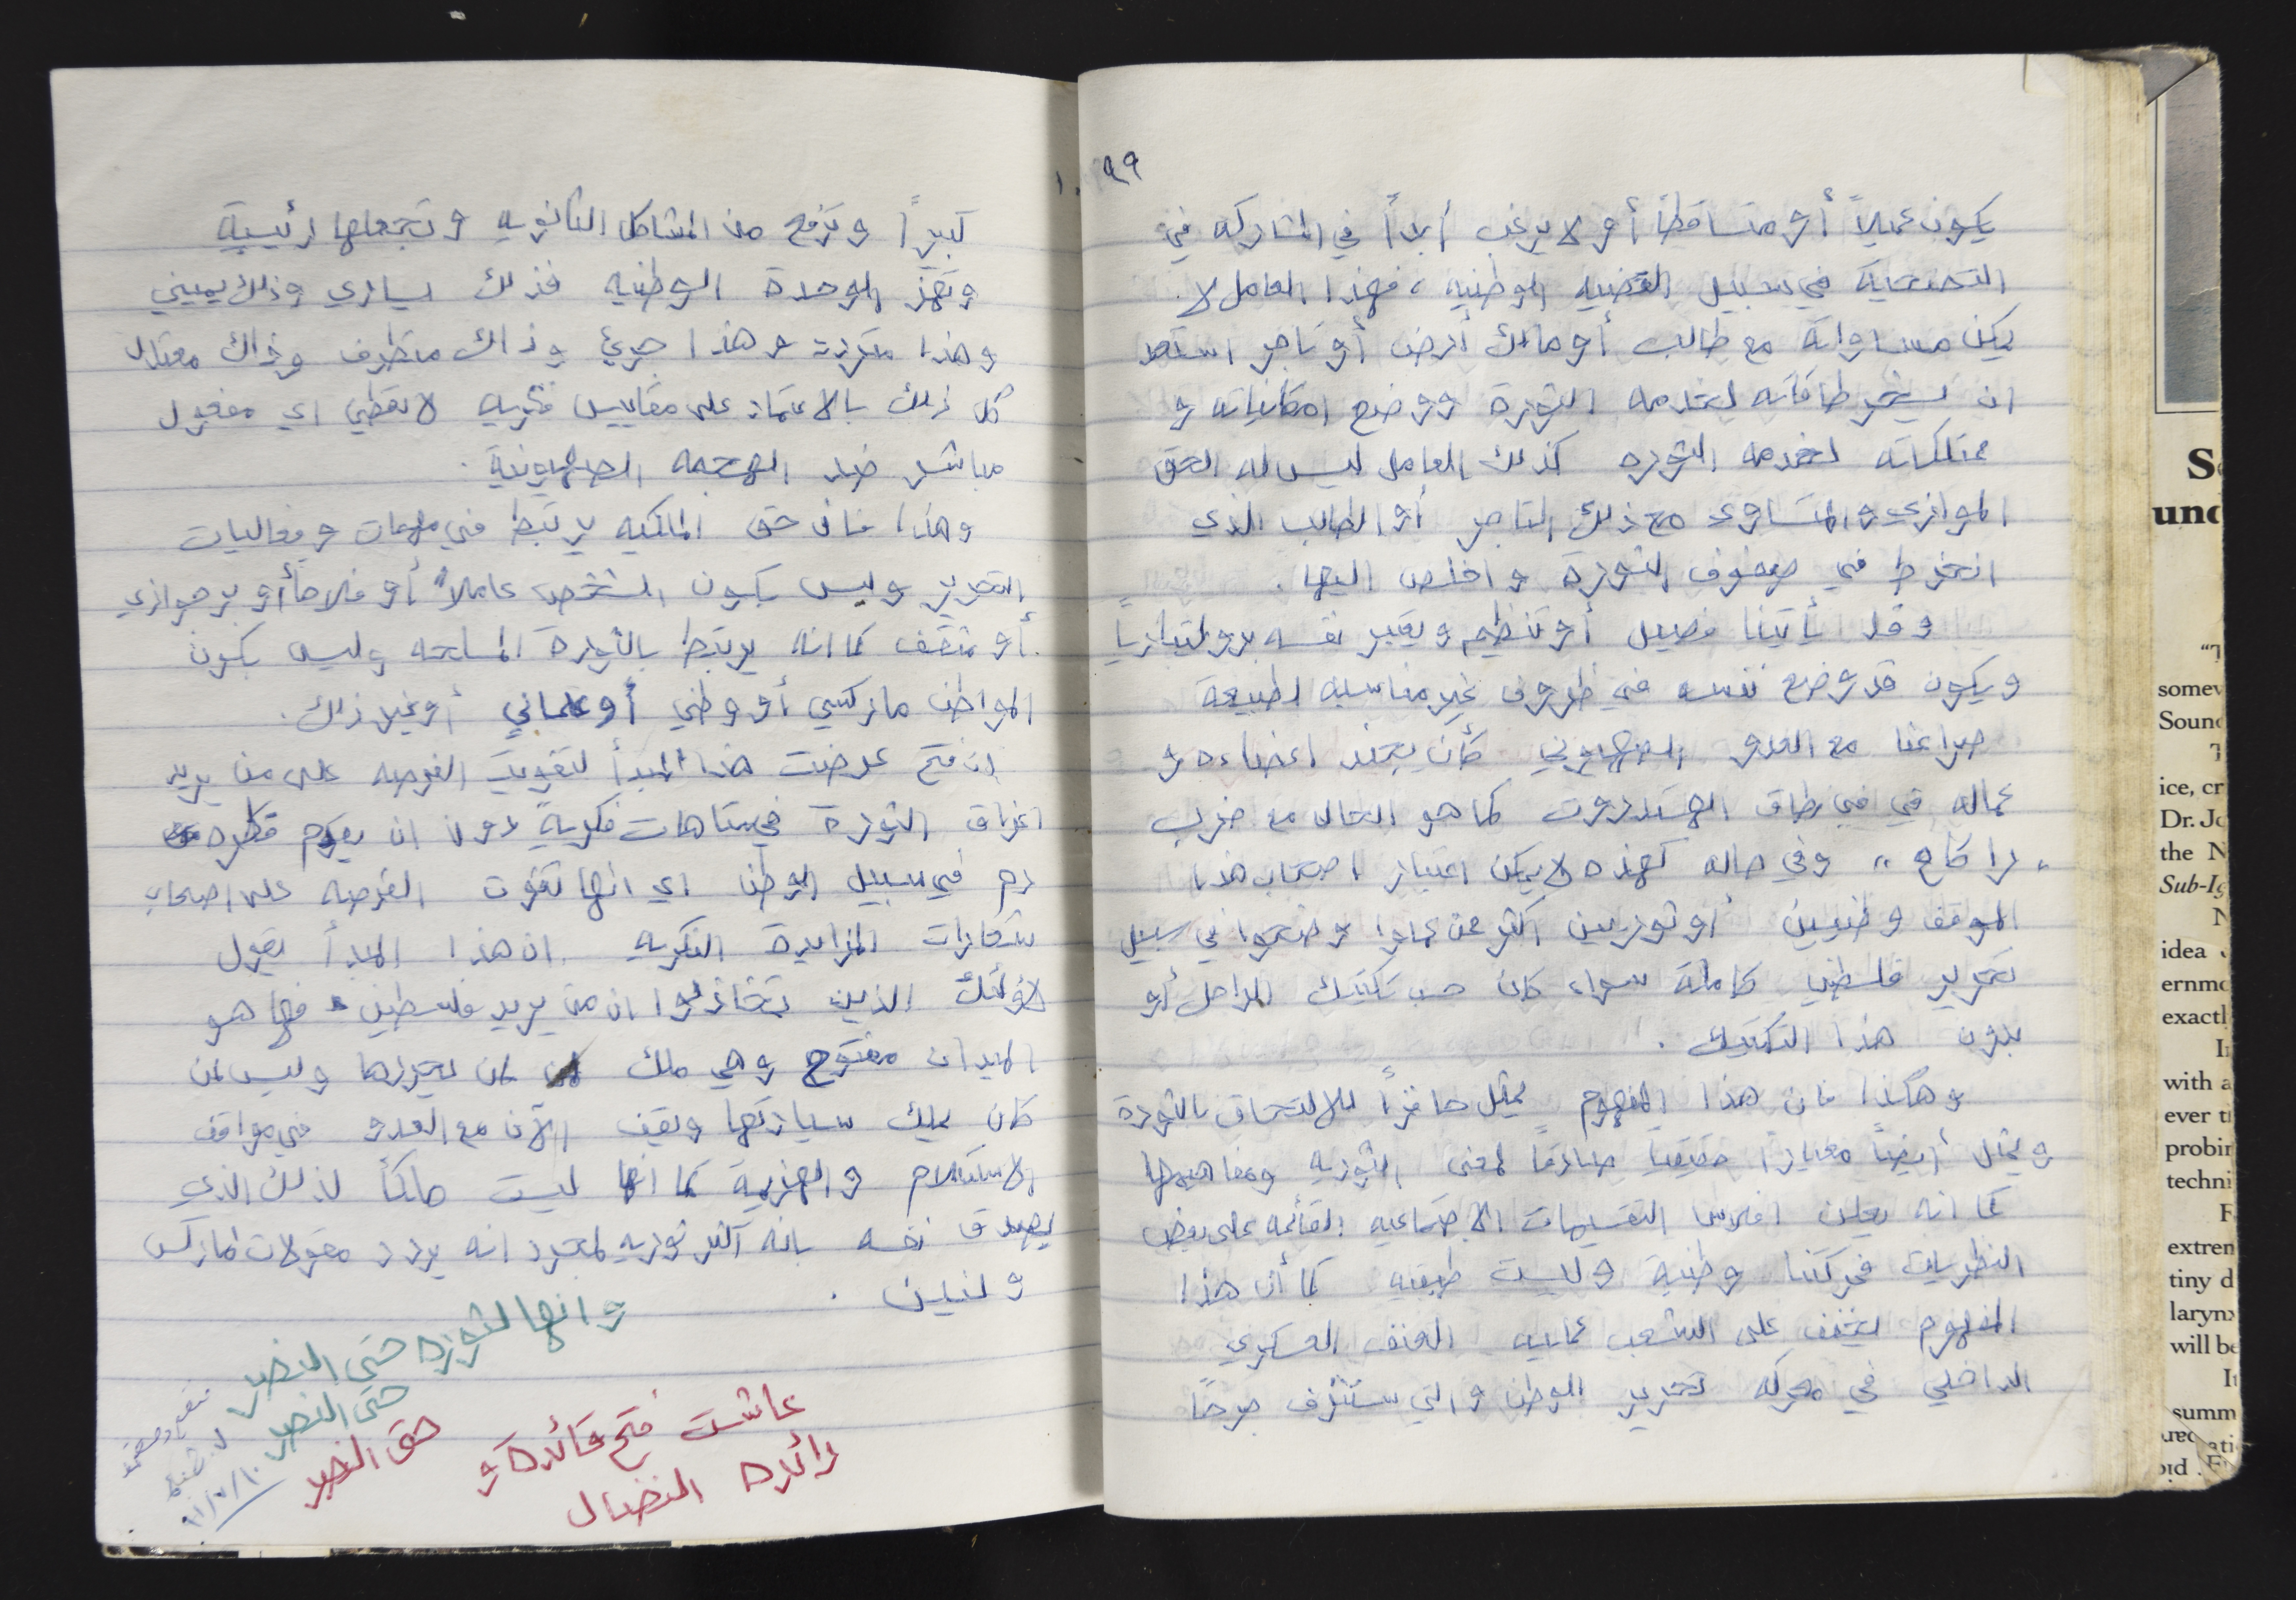 ٩٩
يكون عميلاً أو متساقطاً أو لا يرغب أبداً في المشاركه في
التضحية في سبيل القضيه الوطنيه، فهذا العامل لا
يمكن مساواته مع طالب أو مالك أرض أو تاجر استعد
ان يسخر طاقاته لخدمه الثورة ووضع امكانياته و
ممتلكاته لخدمه الثوره كذلك العامل ليس له الحق
الموازي والمتساوي مع ذلك التاجر أو الطالب الذي
انخرط في صفوف الثورة واخلص اليها .
وقد يأتينا فصيل أو تنظيم ويعتبر نفسه بروليتارياً
ويكون قد وضع نفسه في ظروف غير مناسبه لطبيعة
صراعنا مع العدو الصهيوني كأن يجند اعضاءه و
عماله في في نطاق الهستدروت كما هو الحال مع حزب
" راكاح " وفي حاله كهذه لا يمكن اعتبار اصحاب هذا
الموقف وطنيين أو ثوريين اكثر ممن عملوا وضحوا في سبيل
تحرير فلسطين كاملة سواء كان حسب تكتيك المراحل أو
بدون هذا التكتيك .
وهكذا فان هذا المفهوم يمثل حافزاً للالتحاق بالثورة
ويمثل أيضاً معياراً حقيقياً صادقاً لمعنى الثوريه ومفاهيمها
كما انه يعلن افلاس التقسيمات الاجتماعيه القائمه على بعض
النظريات فحركتنا وطنية وليست طبقيه كما أن هذا
المفهوم يخفف على الشعب عمليه العنف العسكري
الداخلي في معركه تحرير الوطن والتي ستنزف جرحاً
١٠٠
كبيراً وترفع من المشاكل الثانويه وتجعلها رئيسية
وتهز الوحدة الوطنيه فذلك يساري وذلك يميني
وهذا متردد وهذا جريئ وذاك متطرف وذاك معتدل
كل ذلك بالاعتماد على مقاييس نظريه لا تعطي اي مفعول
مباشر ضد الهجمه الصهيونية .
وهذا فان حق الملكيه يرتبط في مهمات وفعاليات
التحرير وليس بكون الشخص عاملاً أو فلاحاً أو برجوازي
أو مثقف كما انه يرتبط بالثورة المسلحه وليس بكون
المواطن ماركسي أو وطني أو علماني أو غير ذلك .
ان فتح عرضت هذا المبدأ لتفويت الفرصه على من يريد
اغراق الثورة في متاهات فكرية دون ان يقدم قطره
دم في سبيل الوطن اي انها تفوت الفرصه على اصحاب
شعارات المزايدة الفكريه ان هذا المبدأ يقول
لأولئك الذين تخاذلوا ان من يريد فلسطين فها هو
الميدان مفتوح وهي ملك لمن يحررها وليس لمن
كان يملك سيادتها ويقف الآن مع العدو في مواقف
الاستسلام والهزيمة كما انها ليست ملكاً لذلك الذي
يصدق نفسه بانه اكثر ثوريه لمجرد انه يردد مقولات لماركس
ولينين .
وانها لثوره حتى النصر
حتى النصر
حتى النصر
عاشت فتح قائدة و
رائده النضال